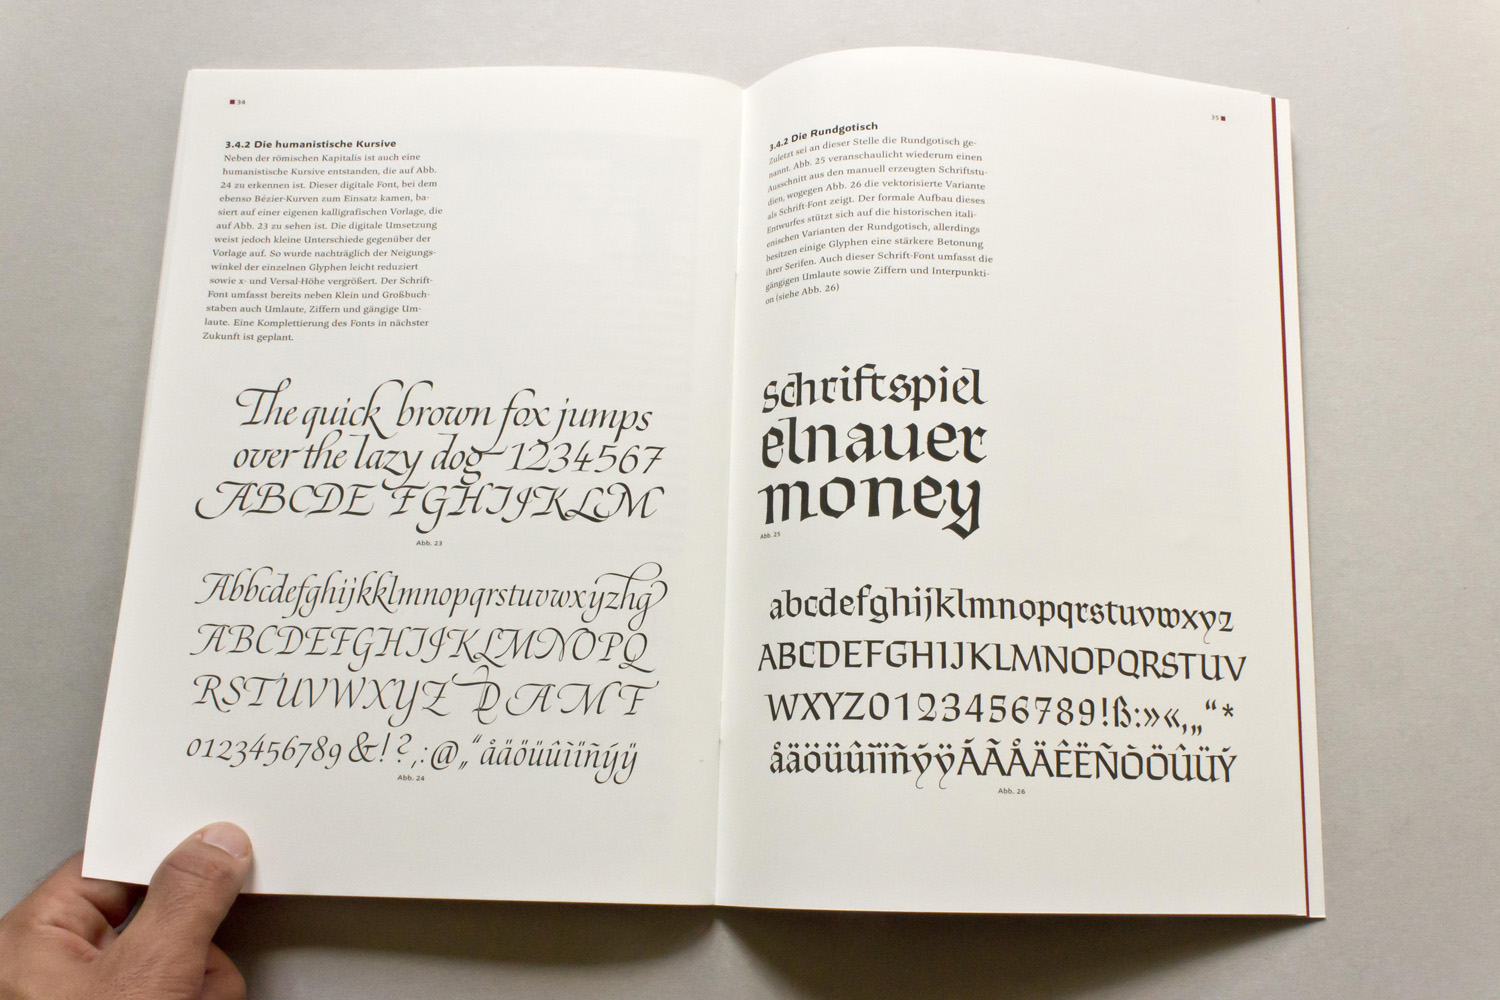 34
3.4.2 Die humanistische Kursive
Neben der römischen Kapitalis ist auch eine
humanistische Kursive entstanden, die auf Abb.
24 zu erkennen ist. Dieser digitale Font, bei dem
ebenso Bézier-Kurven zum Einsatz kamen, ba-
siert auf einer eigenen kalligrafischen Vorlage, die
auf Abb. 23 zu sehen ist. Die digitale Umsetzung
weist jedoch kleine Unterschiede gegenüber der
Vorlage auf. So wurde nachträglich der Neigungs-
winkel der einzelnen Glyphen leicht reduziert
sowie x- und Versal-Höhe vergrößert. Der Schrift-
Font umfasst bereits neben Klein und Großbuch-
staben auch Umlaute, Ziffern und gängige Um-
laute. Eine Komplettierung des Fonts in nächster
Zukunft ist geplant.
The quick brown fox jumps
over the lazy dog 1234567
ABCDE FGHIJKLM
Abb. 23
Abbcdefghijkklmnopqrstuvwxyzhg
ABCDEFGHIJKLMNOPQ
RSTUVWXYZ D A M F
0123456789 &!?,:@„“åäöüûìïñýÿ
Abb. 24
35
3.4.2 Die Rundgotisch
Zuletzt sei an dieser Stelle die Rundgotisch ge-
nannt. Abb. 25 veranschaulicht wiederum einen
Ausschnitt aus den manuell erzeugten Schriftstu-
dien, wogegen Abb. 26 die vektorisierte Variante
als Schrift-Font zeigt. Der formale Aufbau dieses
Entwurfes stützt sich auf die historischen itali-
enischen Varianten der Rundgotisch, allerdings
besitzen einige Glyphen eine stärkere Betonung
ihrer Serifen. Auch dieser Schrift-Font umfasst die
gängigen Umlaute sowie Ziffern und Interpunkti-
on (siehe Abb. 26)
schriftspiel
elnauer
money
Abb. 25
abcdefghijklmnopqrstuvwxyz
ABCDEFGHIJKLMNOPQRSTUV
WXYZ0123456789!ß:»«,„“*
åäöüûîïñýÿÁÃÅÄÊËÑÒÖÛÜÝ
Abb. 26